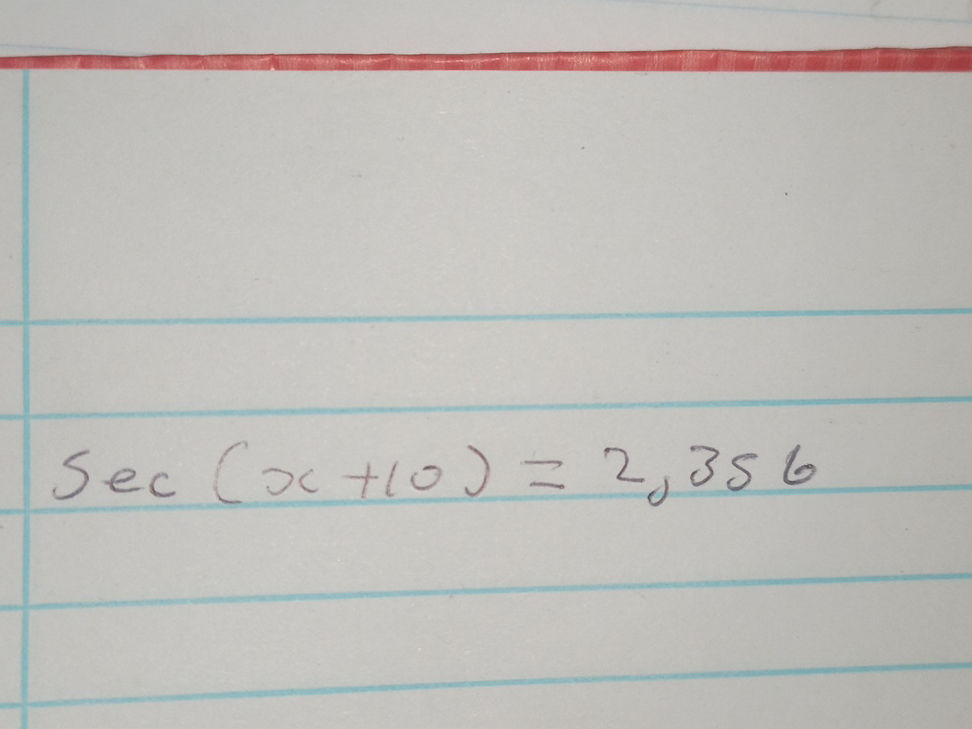 Sec (x+10) = 2,356